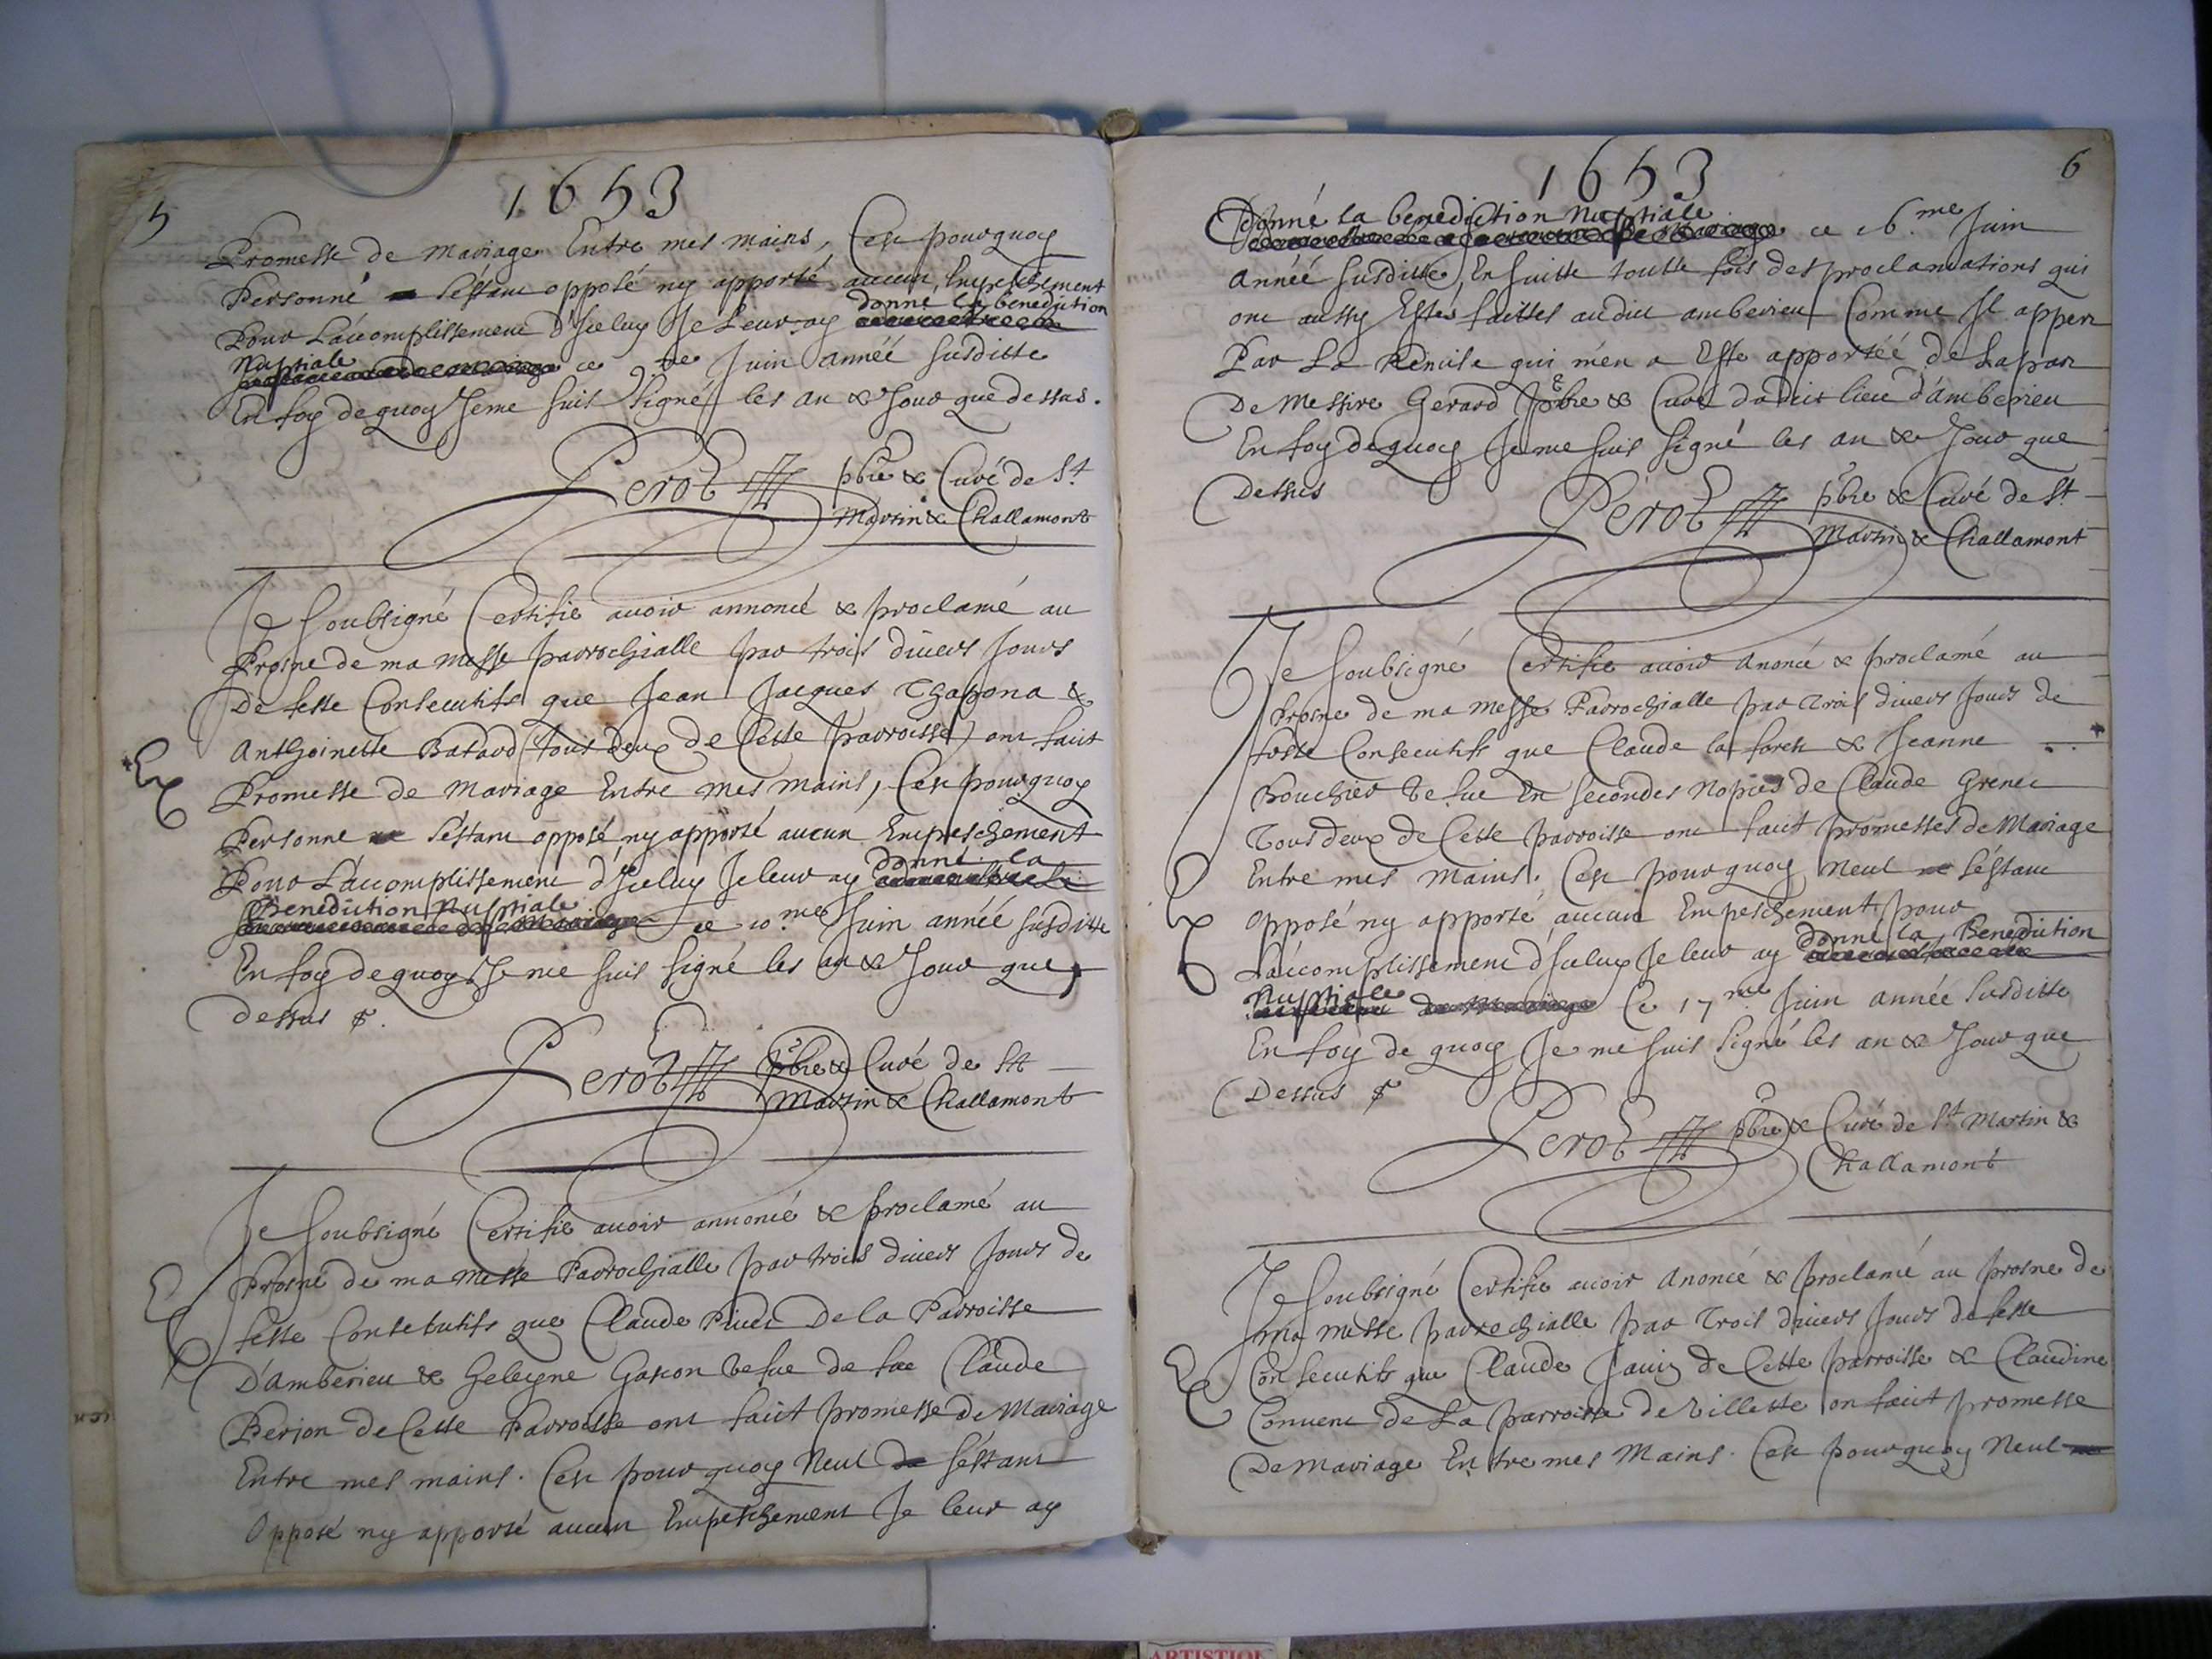 5
1653
Promesse de Mariage Entre mes mains, C'est pourquoy
Personne s'éstant opposé ny apporté aucun Empeschement
donné la benediction
Pour L'accomplissement d'Iceluy Je Leur ay
Nuptiale
ce 9me Juin année susditte
En foy de quoy Je me suis signé les an & Jour que dessus.
Perot pbre & Curé de St
Martin & Challamont
Je Soubsigné Certifie avoir annoncé & proclamé au
Prosne de ma messe parrochialle par trois divers Jours
De feste Consecutifs que Jean Jacques Thapona &
Anthoinette Bataud (tous deux de Cette parroisse) ont fait
Promesse de Mariage Entre mes mains, C'est pourquoy
Personne s'éstant opposé ny apporté aucun Empeschement
donné la
Pour L'accomplissement d'Iceluy Je leur ay
Benediction Nuptiale
ce 10.me Juin année susditte
En foy de quoy Je me suis signé les an & Jour que
dessus
Perot pbre & Curé de St
Martin & Challamont
Je Soubsigné Certifie avoir annoncé & proclamé au
Prosne de ma Messe Parrochialle par trois divers Jours de
feste Consecutifs que Claude De la Parroisse
D'Amberieu & Gascon vefue de feu Claude
Perion de Cette Parroisse ont fait promesse de Mariage
Entre mes mains. C'est pourquoy Neul s'éstant
Opposé ny apporté aucun Empeschement Je leur ay
6
1653
Donné la benediction Nuptiale
ce 16.me Juin
Année susditte, En suitte toutte fois des proclamations qui
ont aussy Estés faittes audit amberieu Comme Il appert
Par La Remise qui m'en a Esté apportéé de La part
De Messire Gerard pbre & Curé dudit lieu d'amberieu
En foy de quoy Je me suis signé les an & Jour que
Dessus
Perot pbre & Curé de St
Martin & Challamont
Je Soubsigné Certifie avoir Anoncé & proclamé au
Prosne de ma Messe Parrochialle par Trois divers Jours de
feste Consecutifs que Claude la forest & Jeanne
Bouchier vefue En secondes Nopces de Claude Grenet
Tous deux de Cette parroisse ont fait promesses de Mariage
Entre mes Mains. C'est pourquoy Neul s'éstant
Opposé ny apporté aucun Empeschement pour
donné la Benediction
L'accomplissement d'Iceluy Je leur ay
Nuptiale
Ce 17me Juin année susditte
En foy de quoy Je me suis signé les an & Jour que
Dessus
Perot pbre & Curé de St Martin &
Challamont
Je Soubsigné Certifie avoir Anoncé & proclamé au prosne de
ma Messe parrochialle par Trois divers Jours de feste
Consecutifs que Claude de Cette parroisse & Claudine
Convent de La parroisse de Villette ont fait promesse
De Mariage Entre mes Mains. C'est pourquoy Neul